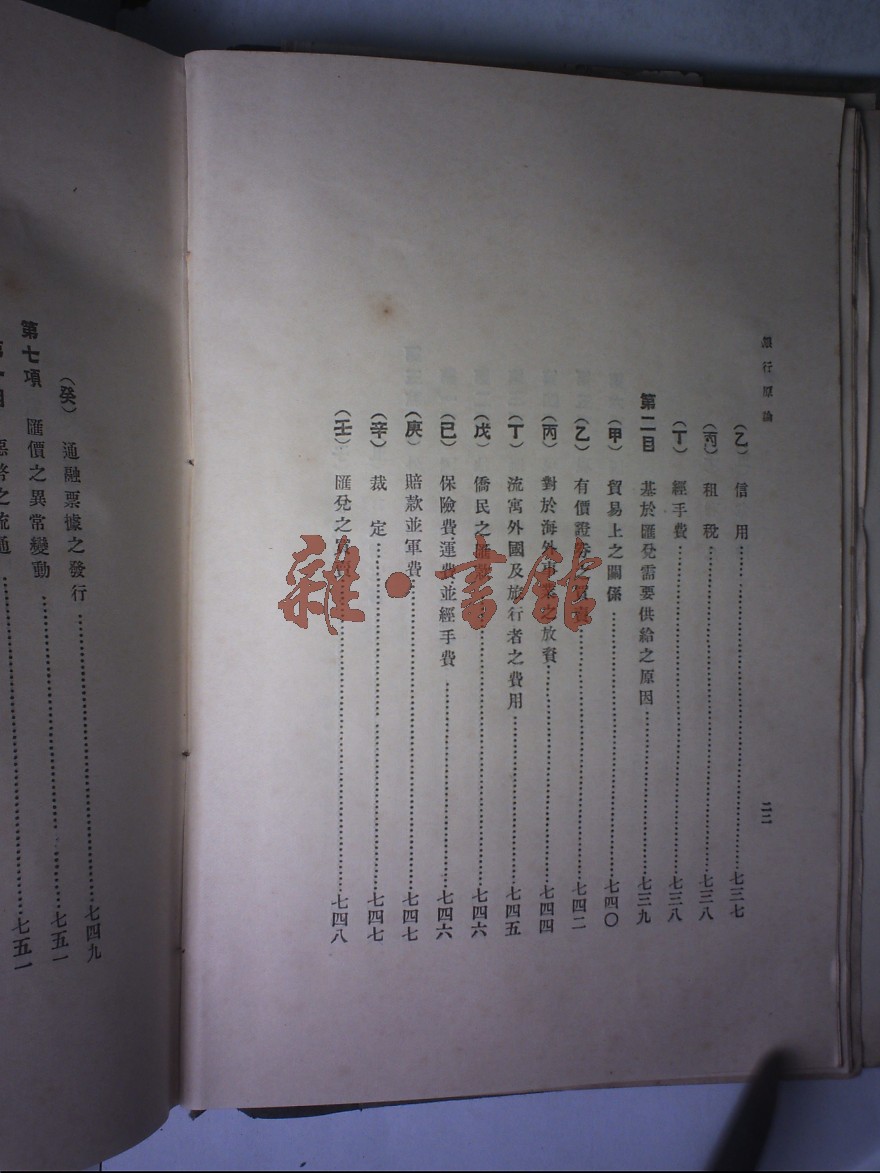 銀行原論
二二
（乙） 信用…七三七
（丙） 租稅…七三八
（丁） 經手費…七三八
第二目 基於匯兌需要供給之原因…七三九
（甲） 貿易上之關係…七四〇
（乙） 有價證券之買賣…七四二
（丙） 對於海外事業之放資…七四四
（丁） 流寓外國及旅行者之費用…七四五
（戊） 僑民之匯款…七四六
（己） 保險費運費並經手費…七四六
（庚） 賠款並軍費…七四七
（辛） 裁定…七四七
（壬） 匯兌之買賣…七四八
（癸） 通融票據之發行…七四九
第七項 匯價之異常變動…七五一
第一目 惡幣之流通…七五一
雜·書館